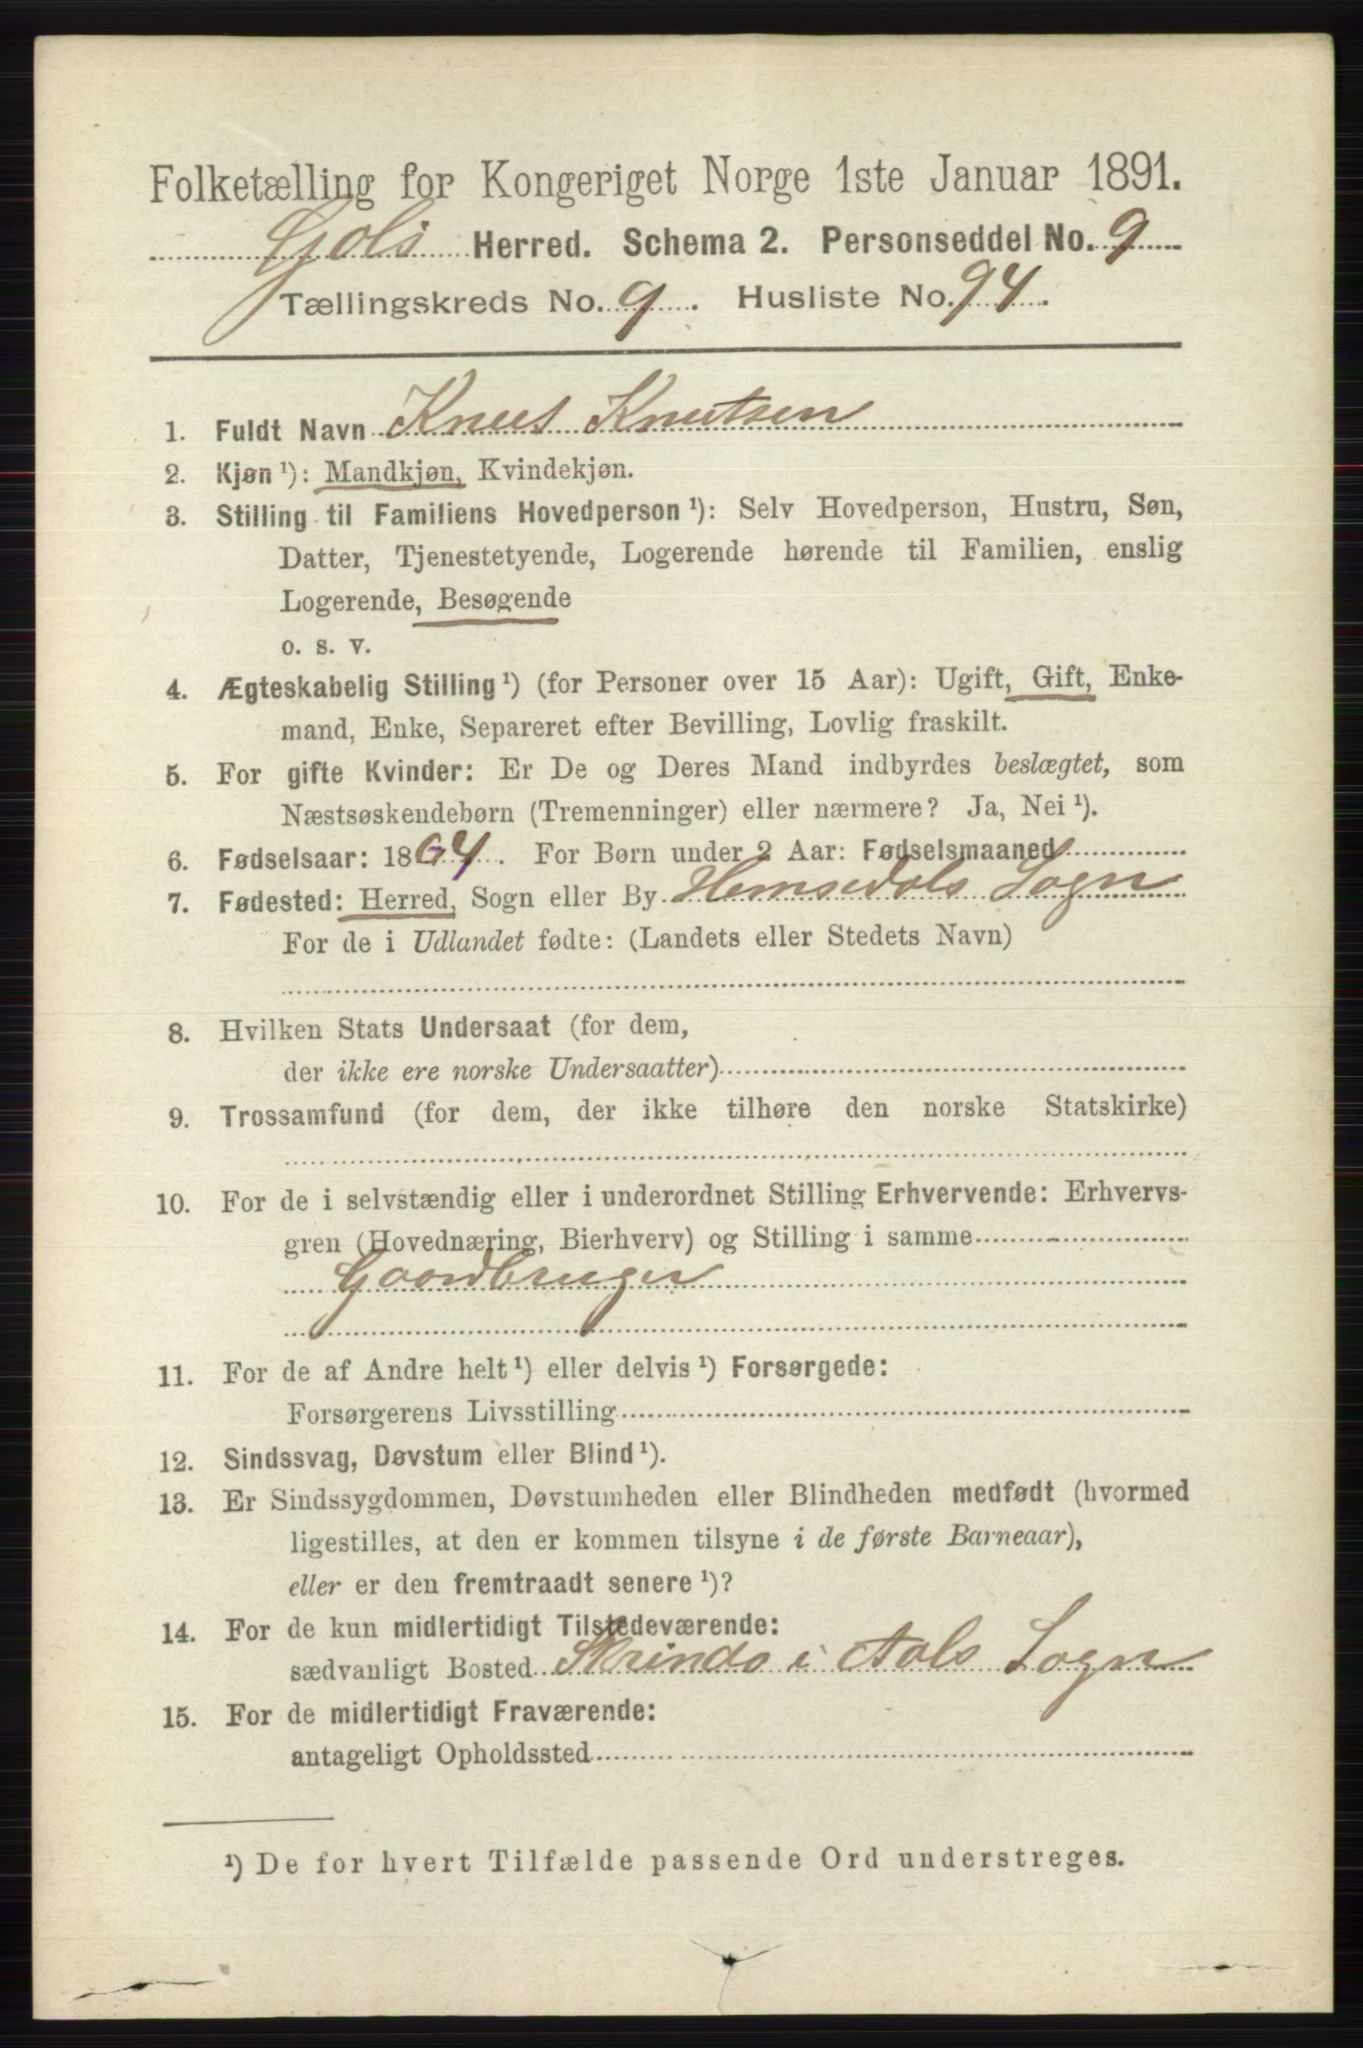 Folketælling for Kongeriget Norge 1ste Januar 1891.
Gols Herred. Schema 2. Personseddel No. 9
Tællingskreds No. 9. Husliste No. 94.
1. Fuldt Navn Knut Knutsen
2. Kjøn ¹): Mandkjøn, Kvindekjøn.
3. Stilling til Familiens Hovedperson ¹): Selv Hovedperson, Hustru, Søn,
Datter, Tjenestetyende, Logerende hørende til Familien, enslig
Logerende, Besøgende
o. s. v.
4. Ægteskabelig Stilling ¹) (for Personer over 15 Aar): Ugift, Gift, Enke-
mand, Enke, Separeret efter Bevilling, Lovlig fraskilt.
5. For gifte Kvinder: Er De og Deres Mand indbyrdes beslægtet, som
Næstsøskendebørn (Tremenninger) eller nærmere? Ja, Nei ¹).
6. Fødselsaar: 1864. For Børn under 2 Aar: Fødselsmaaned
7. Fødested: Herred, Sogn eller By Hemsedals Sogn
For de i Udlandet fødte: (Landets eller Stedets Navn)
8. Hvilken Stats Undersaat (for dem,
der ikke ere norske Undersaatter)
9. Trossamfund (for dem, der ikke tilhøre den norske Statskirke)
10. For de i selvstændig eller i underordnet Stilling Erhvervende: Erhvervs-
gren (Hovednæring, Bierhverv) og Stilling i samme
Gaardbruger
11. For de af Andre helt ¹) eller delvis ¹) Forsørgede:
Forsørgerens Livsstilling
12. Sindssvag, Døvstum eller Blind ¹).
13. Er Sindssygdommen, Døvstumheden eller Blindheden medfødt (hvormed
ligestilles, at den er kommen tilsyne i de første Barneaar),
eller er den fremtraadt senere ¹)?
14. For de kun midlertidigt Tilstedeværende:
sædvanligt Bosted Skrindo i Aals Sogn
15. For de midlertidigt Fraværende:
antageligt Opholdssted
¹) De for hvert Tilfælde passende Ord understreges.